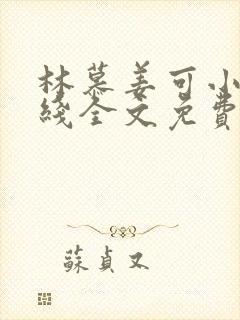 林慕姜可小
綫全文免費
蘇貞又